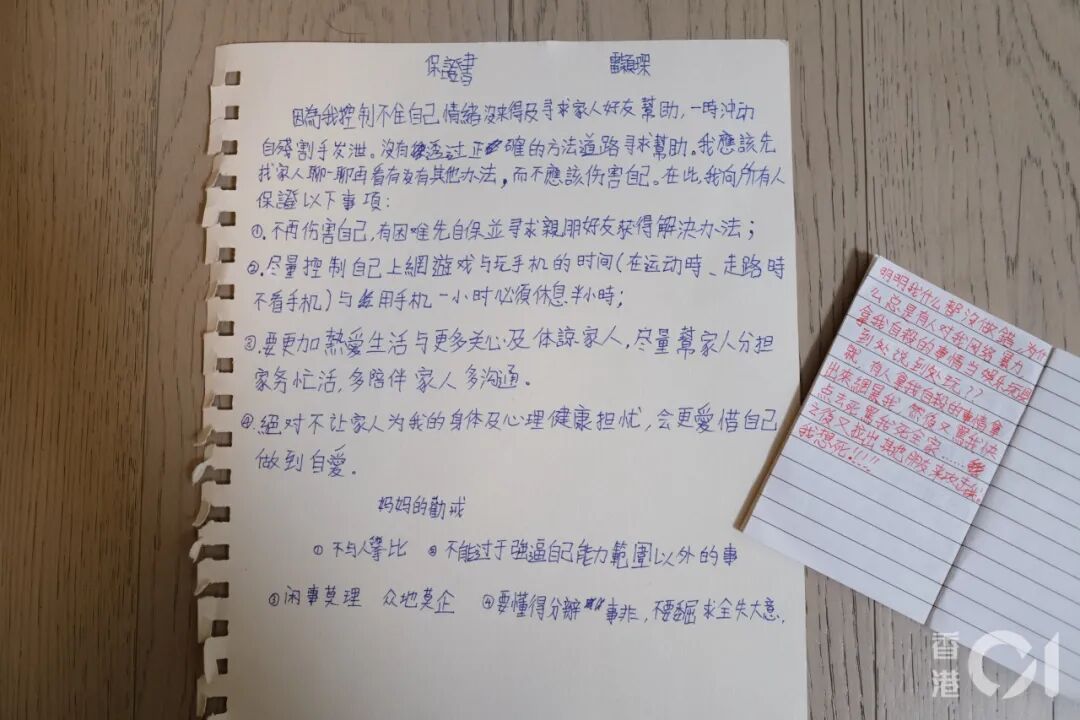 保證書
因為我控制不住自己情緒沒來得及寻求家人好友幫助，一時冲动
自殘割手发泄。沒有透过正確的方法道路寻求幫助。我應該先
找家人聊一聊再看有沒有其他办法，而不應該伤害自己。在此，我向所有人
保證以下事項：
①.不再伤害自己，有因唯先自保並寻求親朋好友获得解決办法；
②.尽量控制自己上網遊戏与玩手机的时间（在运动時、走路時
不看手机）与 用手机一小时必須休息半小時；
③.要更加熱爱生活与更多关心及体諒家人，尽量幫家人分担
家务忙活，多陪伴家人多沟通。
④.絕对不让家人为我的身体及心理健康担忧，会更愛惜自己
做到自爱。
妈妈的勸戒
①不与人攀比 ②不能过于强逼自己能力範圍以外的事
③闲事莫理 众地莫企 ④要懂得分辦 事非，不要 求全失大意.
明明我什么都没做錯，为什
么总是有人对我网络暴力
拿我自殺的事情当
到处说到处玩???
有人拿我自殺的事情拿
出來網暴我 然后又罵我快
点去死罵我死全家……
之後又找出其他朋友來攻击我。
我想死!!!!!
香港01